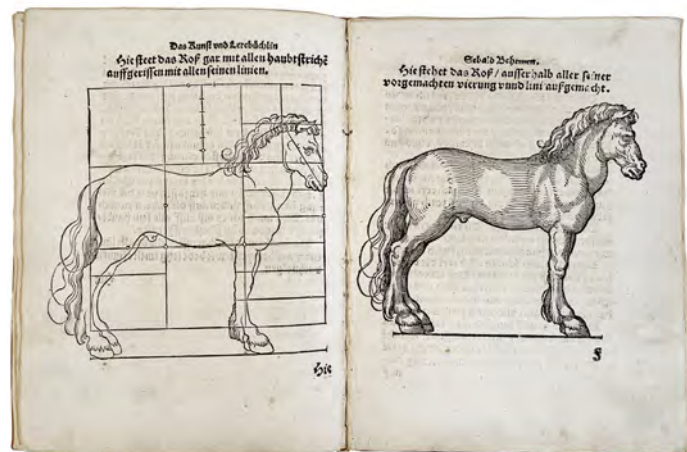 Das Kunst vnd Lerebüchlin
Hie steet das Roß gar mit allen haubtstrichē
auffgerissen mit allen seinen linien.
Hie
Sebald Behemen.
Hie stehet das Roß / ausserhalb aller seiner
vorgemachten vierung vnnd lini außgemacht.